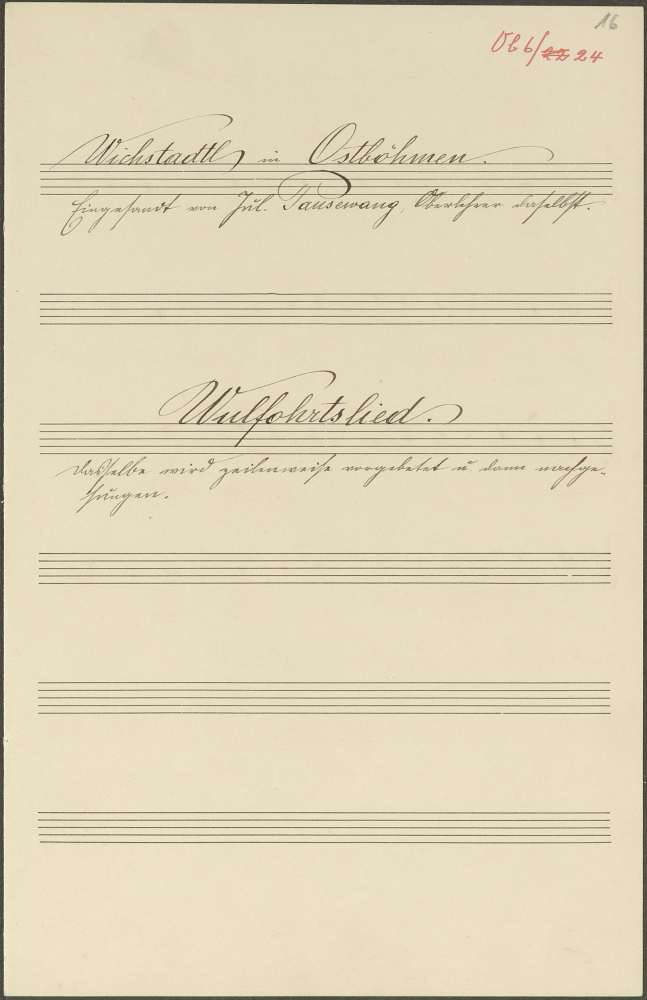 16
Ob 6/22 24
Wichstadtl in Ostböhmen.
Eingesandt von Jul. Pausewang, Oberlehrer daselbst.
Wulfohrtslied.
Dasselbe wird zeilenweise vorgebetet u dann nachge-
sungen.